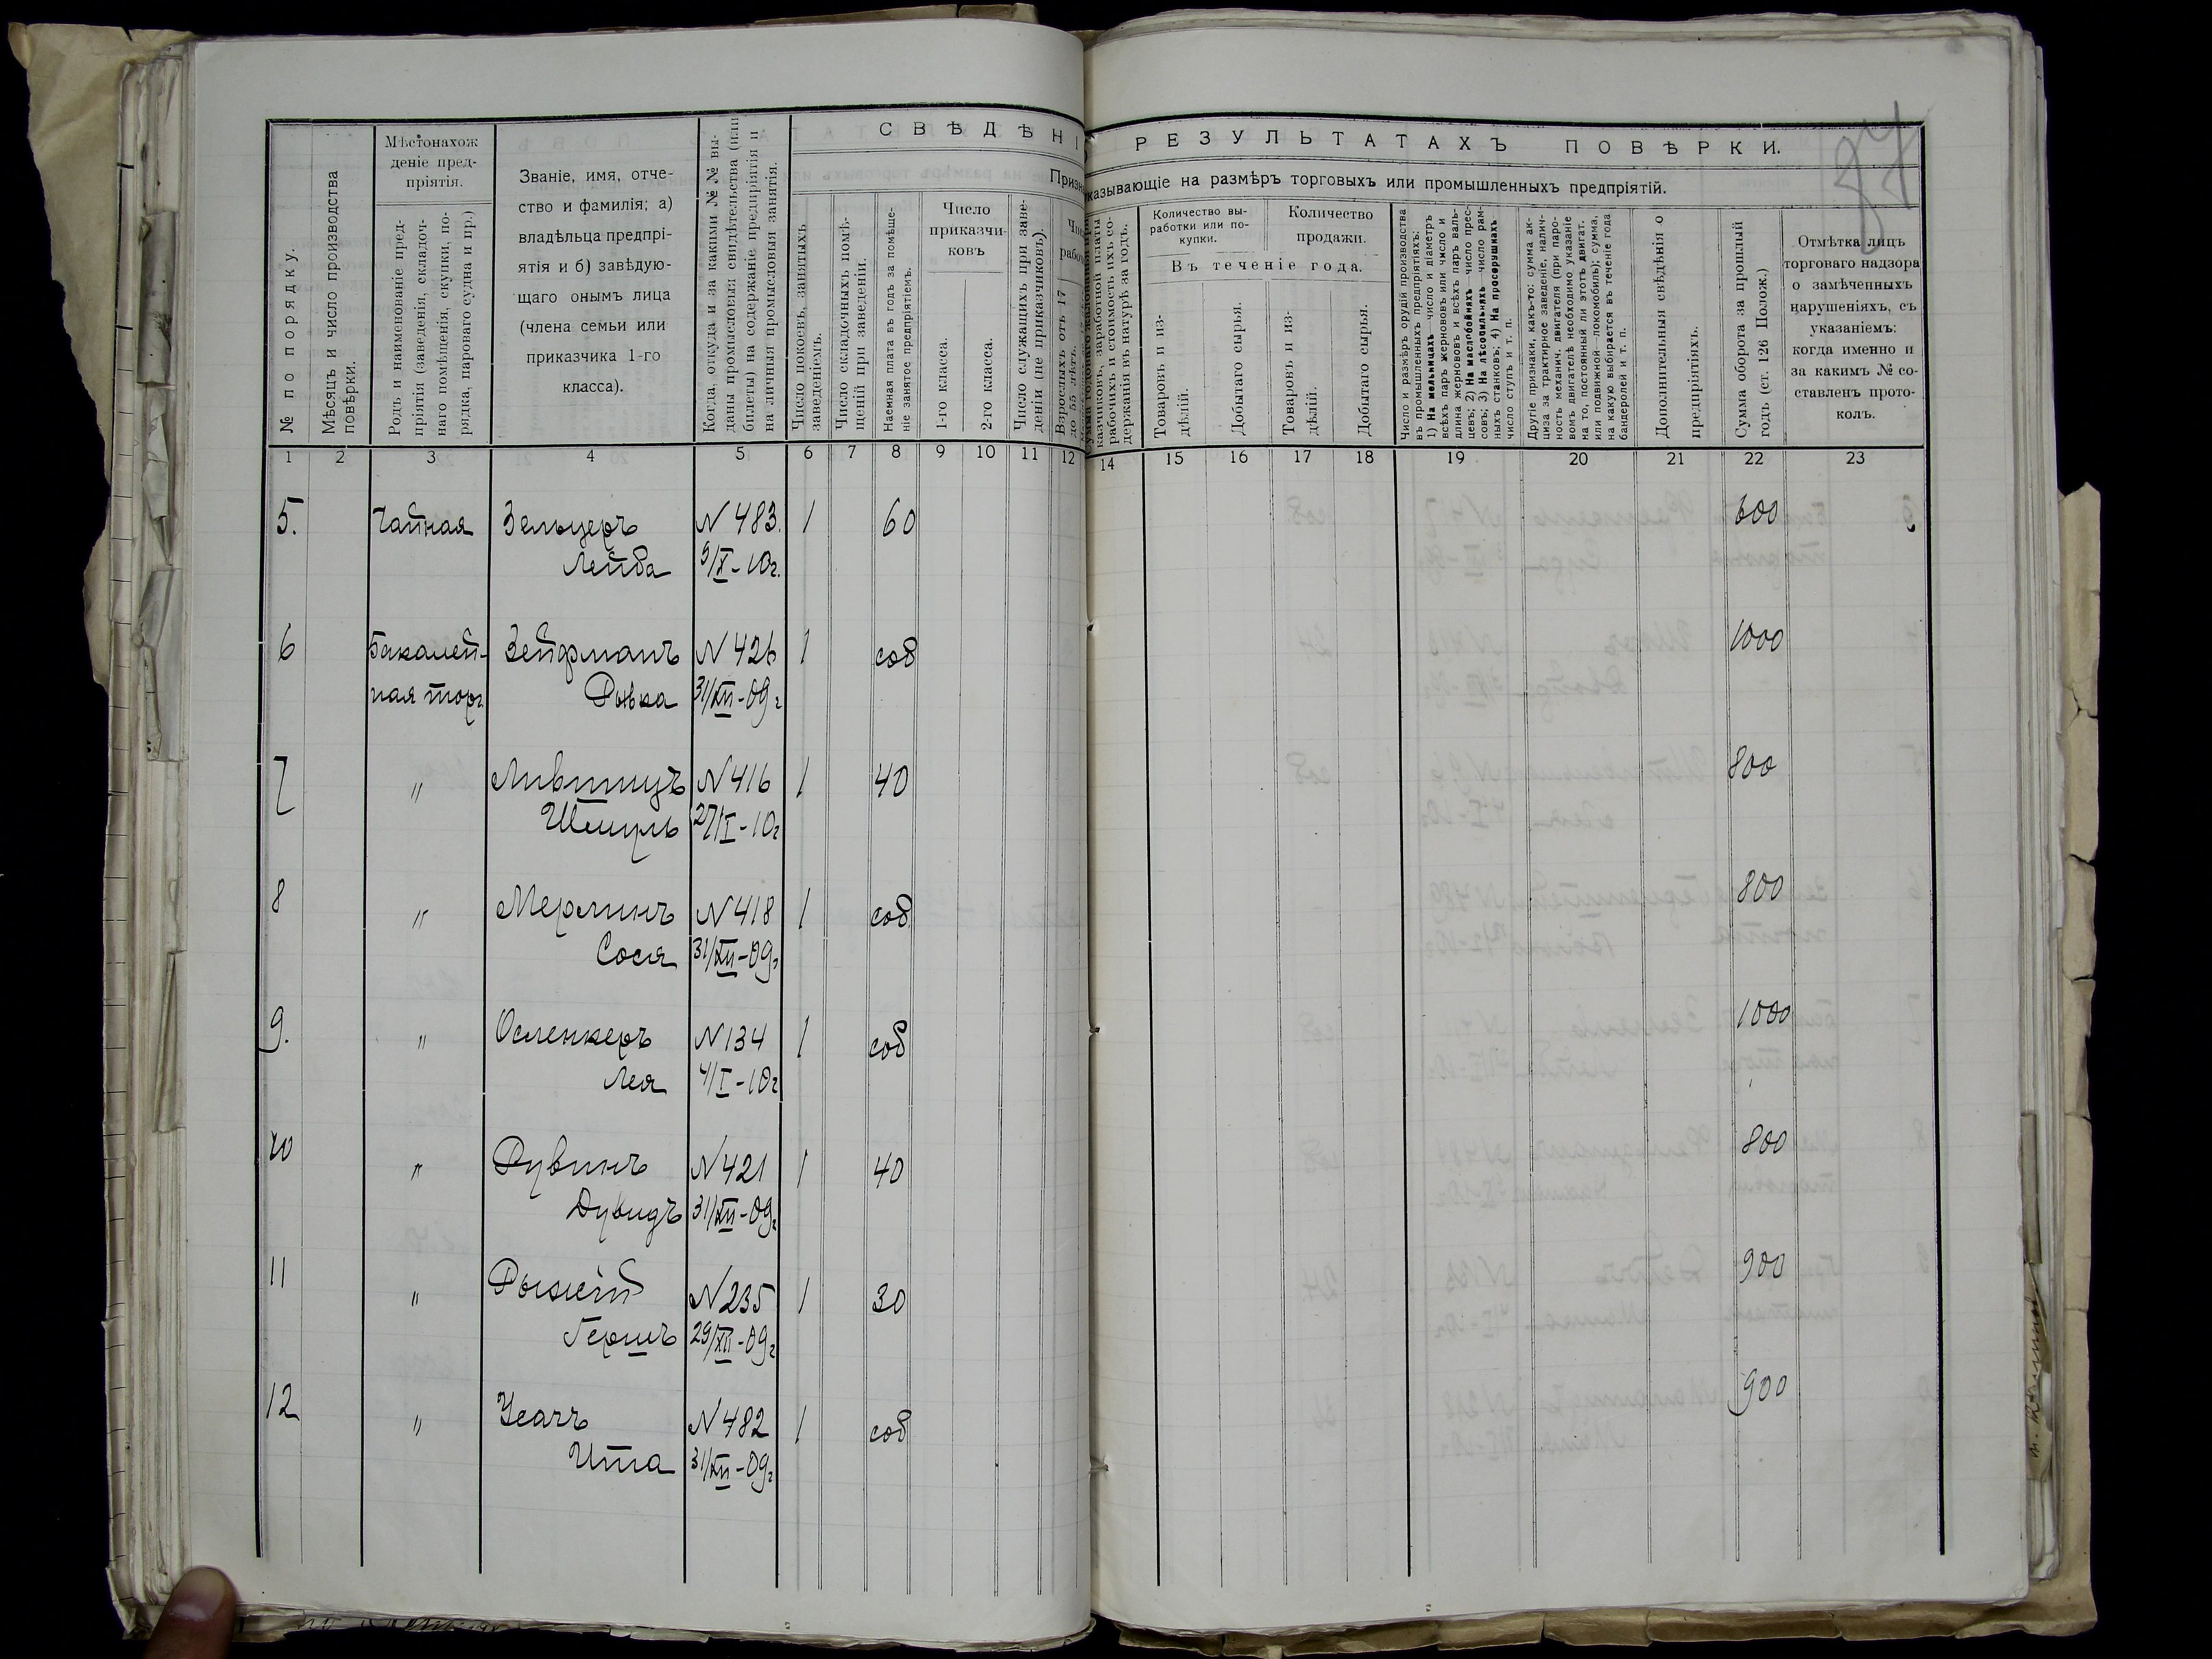 СВѢДѢНІ
РЕЗУЛЬТАТАХЪ ПОВѢРКИ.
Призн
казывающіе на размѣръ торговыхъ или промышленныхъ предпріятій.
№ по порядку.
Мѣсяцъ и число производства
повѣрки.
Мѣстонахож
деніе пред-
пріятія.
Родъ и наименованіе пред-
пріятія (заведенія, складоч-
наго помѣщенія, скупки, по-
рядка, парового судна и пр.)
Званіе, имя, отче-
ство и фамилія; а)
владѣльца предпрі-
ятія и б) завѣдую-
щаго онымъ лица
(члена семьи или
приказчика 1-го
класса).
Когда, откуда и за какими №№ вы-
даны промысловыя свидѣтельства (или
билеты) на содержаніе предпріятія и
на личныя промысловыя занятія.
Число покоевъ, занятыхъ
заведеніемъ.
Число складочныхъ помѣ-
щеній при заведеніи.
Наемная плата въ годъ за помѣще-
ніе занятое предпріятіемъ.
Число
приказчи-
ковъ
1-го класса.
2-го класса.
Число служащихъ при заве-
деніи (не приказчиковъ).
Взрослыхъ отъ 17
до 55 лѣтъ.
казчиковъ, заработной платы
рабочихъ и стоимость ихъ со-
держанія въ натурѣ за годъ.
Количество вы-
работки или по-
купки.
Количество
продажи.
Въ теченіе года.
Товаровъ и из-
дѣлій.
Добытаго сырья.
Товаровъ и из-
дѣлій.
Добытаго сырья.
Число и размѣръ орудій производства
въ промышленныхъ предпріятіяхъ:
1) На мельницахъ число и діаметръ
всѣхъ паръ жернововъ или число и
длина жернововъ и всѣхъ паръ валь-
цевъ; 2) На маслобойняхъ число прес-
совъ; 3) На лѣсопильняхъ число рам-
ныхъ станковъ; 4) На просорушкахъ
число ступъ и т. п.
Другіе признаки, какъ-то: сумма ак-
циза за трактирное заведеніе, налич-
ность механич. двигателя (при паро-
вомъ двигателѣ необходимо указаніе
на то, постоянный ли этотъ двигат.
или подвижной—локомобиль); сумма,
на какую выбирается въ теченіе года
бандеролей и т. п.
Дополнительныя свѣдѣнія о
предпріятіяхъ.
Сумма оборота за прошлый
годъ (ст. 126 Полож.)
Отмѣтка лицъ
торговаго надзора
о замѣченныхъ
нарушеніяхъ, съ
указаніемъ:
когда именно и
за какимъ № со-
ставленъ прото-
колъ.
1 2 3 4 5 6 7 8 9 10 11 12 14 15 16 17 18 19 20 21 22 23
5. Чайная Зельцеръ N 483. 1 60 600
Лейба 9/X-10г.
6 Бакалей- Зейфманъ N 426 1 соб 1000
ная торг. Рывка 31/XII-09г
7 " Лившицъ N 416 1 40 800
Шмуль 27/I-10г
8 " Мерлинъ N 418 1 соб. 800
Сося 31/XII-09г
9. " Осленкеръ N 134 1 соб 1000
Лея 4/I-10г
10 " Рувинъ N 421 1 40 800
Дувидъ 31/XII-09г
11 " Рыжій N 235 1 30 900
Гершъ 29/XII-09г
12 " Усачъ N 482 1 соб 900
Ита 31/XII-09г